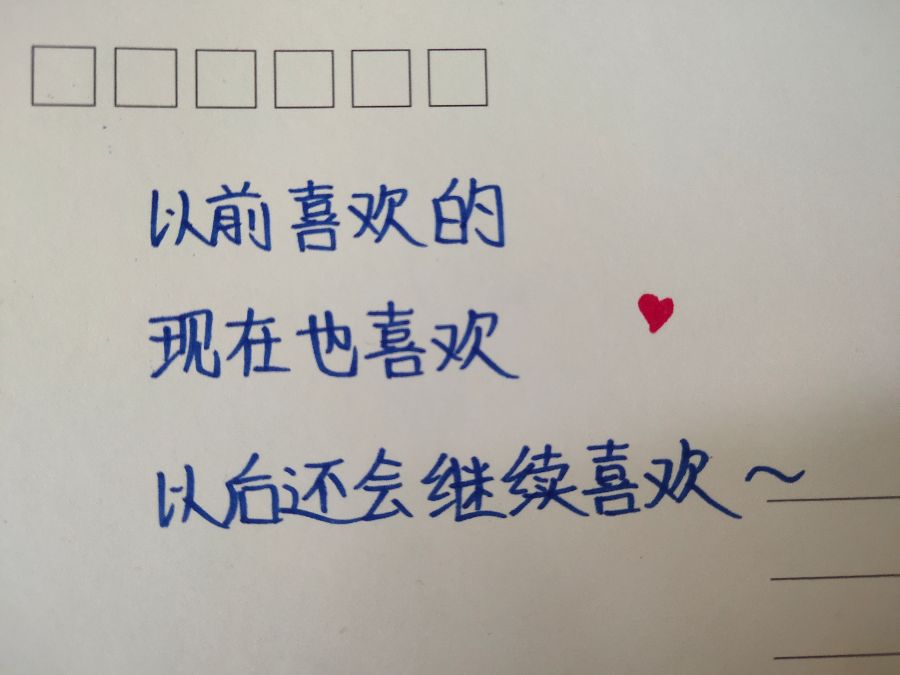 以前喜欢的
现在也喜欢
以后还会继续喜欢～